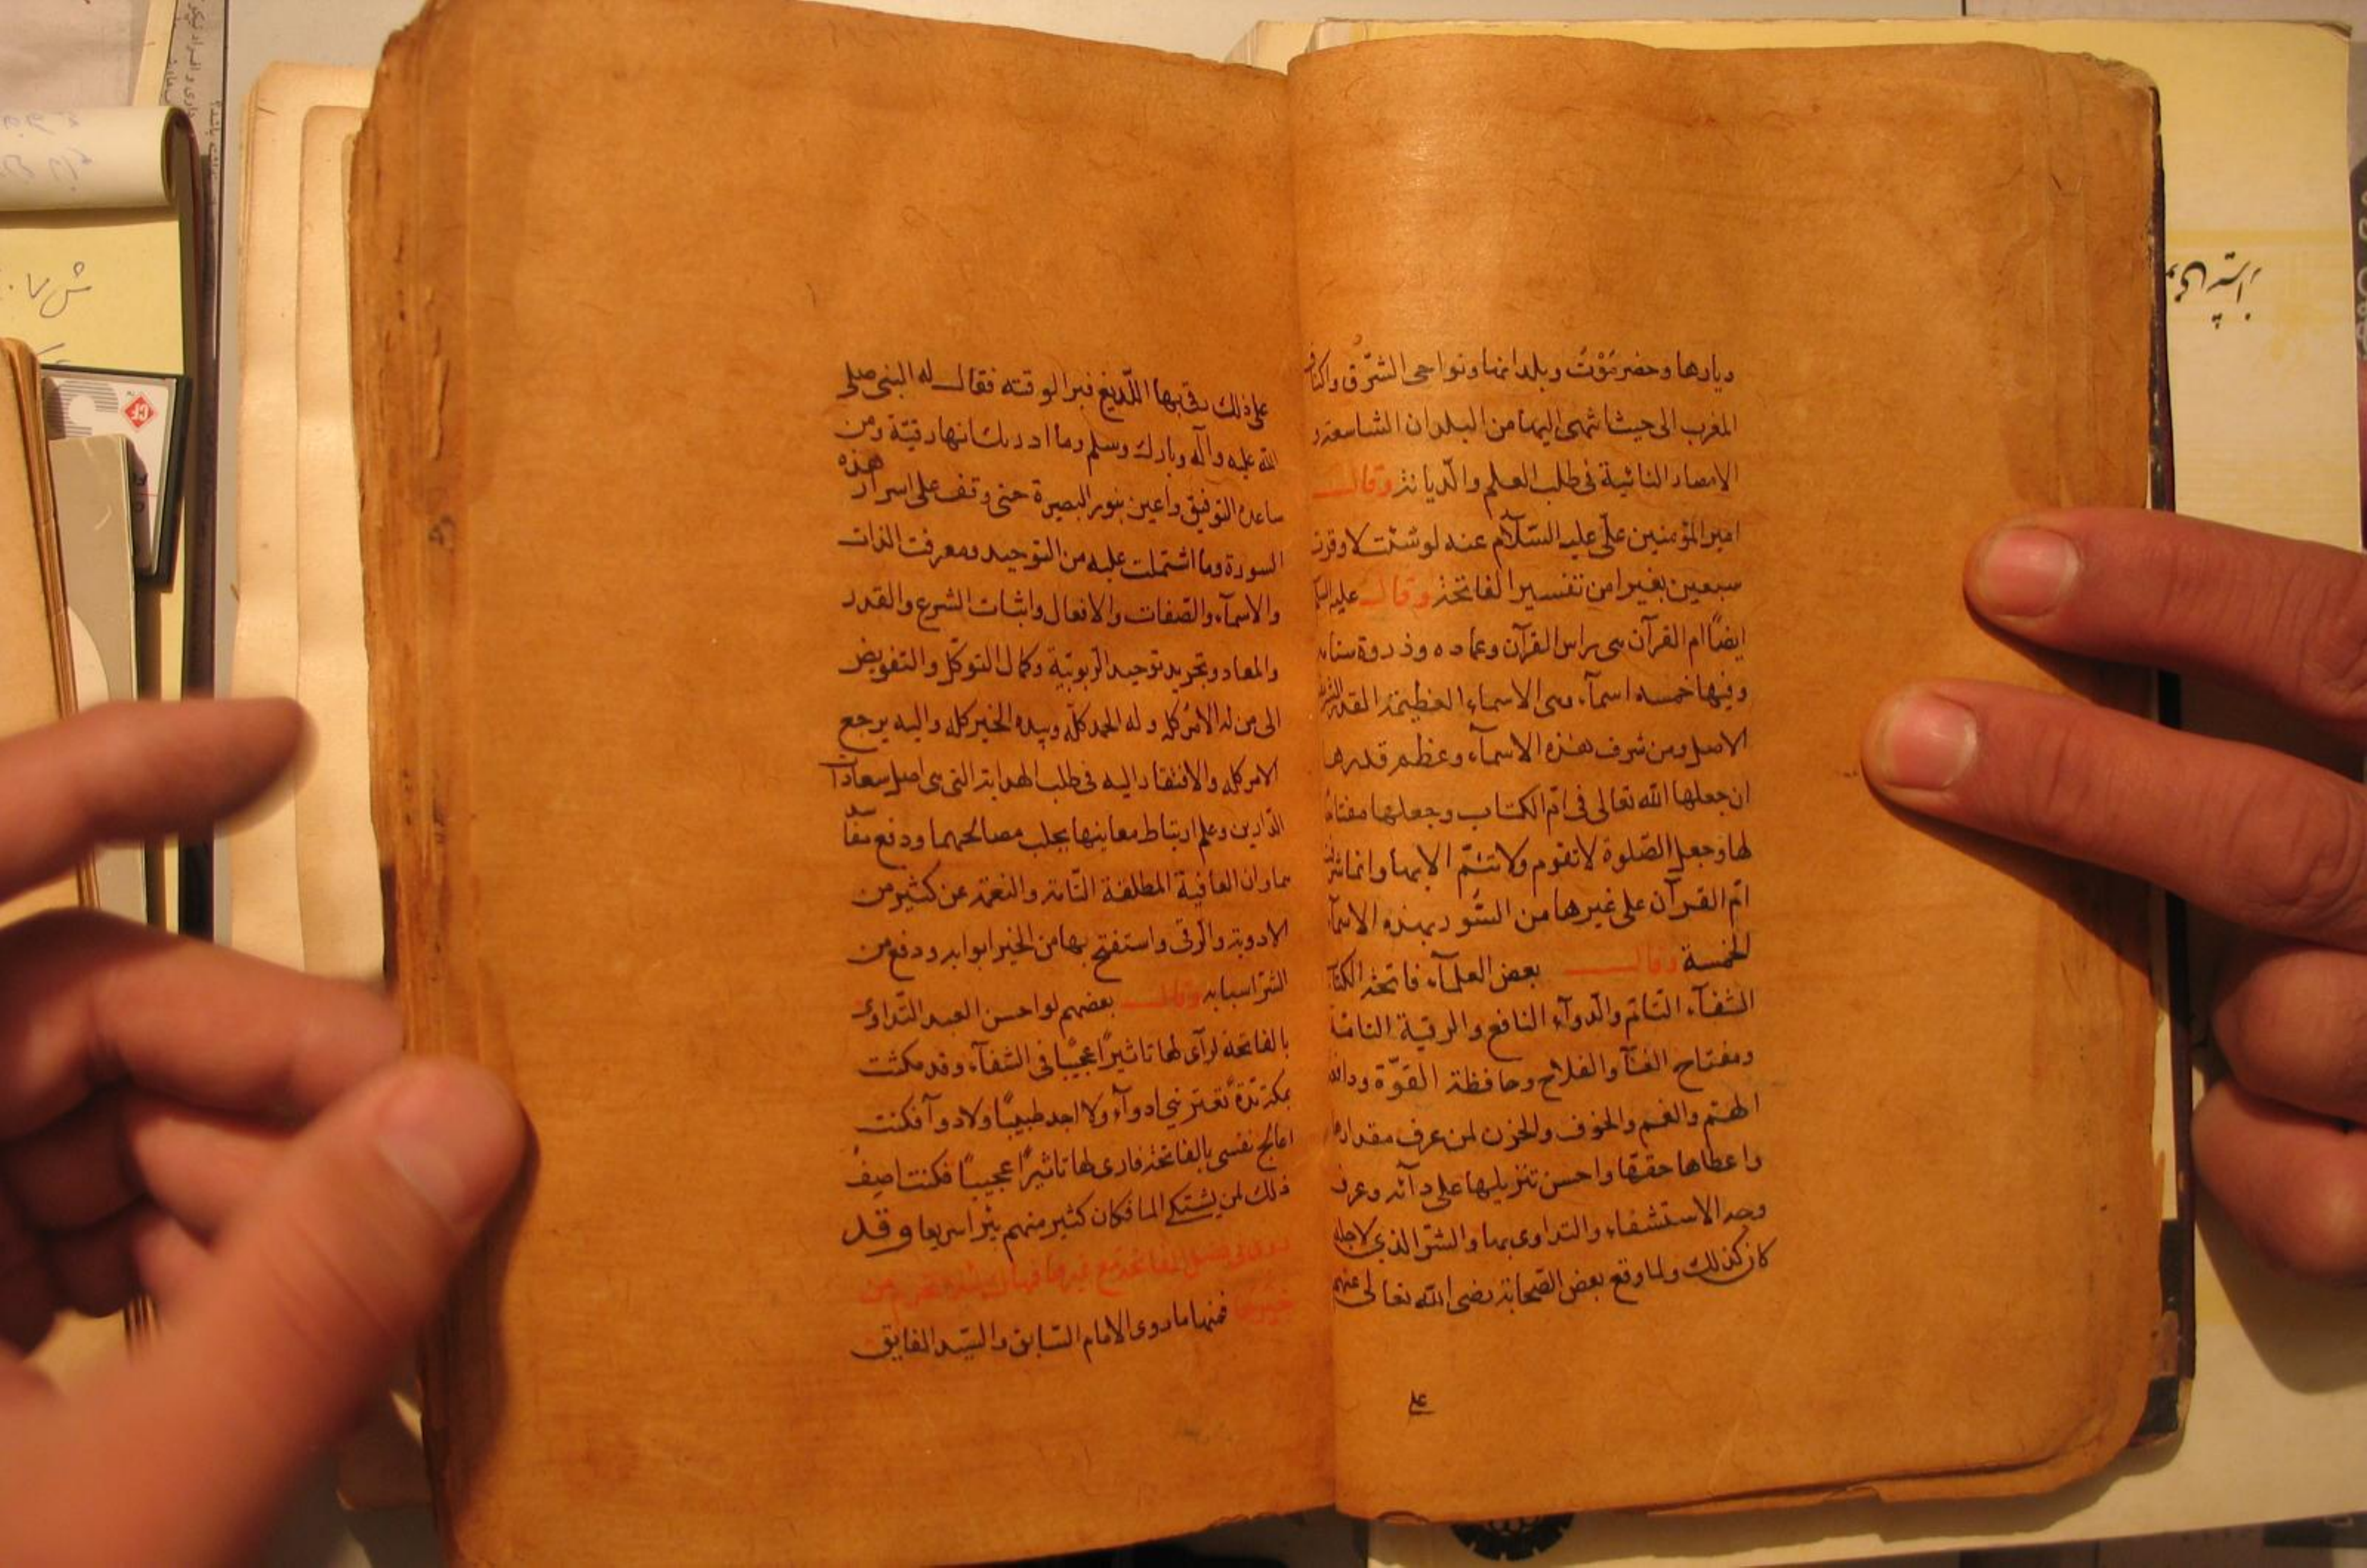 ديارها وحضرمَوْتُ وبلدانها ونواحى الشّرق واكناف
المغرب الى حيث انتهى اليها من البلدان الشاسعة و
الامصار النائية فى طلب العلم والدّيانة وقال
امير المؤمنين علىّ عليه السّلام عنه لو شئت لاوقرت
سبعين بغيرا من تفسير الفاتحة وقال عليه السلم
ايضًا ام القرآن هى راس القرآن وعماده وذروة سنامه
وفيها خمسه اسمآء وهى الاسماء العظيمة المقدار
الاصل ومن شرف هذه الاسمآء وعظم قدرها
ان جعلها الله تعالى فى امّ الكتاب وجعلها مفتاح
لها وجعل الصّلوة لا تقوم ولا تتمّ الا بها وانما
امّ القرآن على غيرها من السّور بهذه الاسمآء
الخمسة وقال بعض العلمآء فاتحة الكتاب
الشفآء التّام والدّوآء النافع والرقية التامّة
ومفتاح الغنآ والفلاح وحافظة القوّة ودافعة
الهمّ والغم والخوف والحزن لمن عرف مقدارها
واعطاها حقها واحسن تنزيلها على دآئه وعرف
وجه الاستشفاء والتداوى بها والسّر الذى لاجله
كان كذلك ولما وقع بعض الصّحابة رضى الله تعالى عنهم
على
على ذلك رقى بها اللّديغ فبرا لوقته فقال له النبى صلى
الله عليه وآله وبارك وسلم وما ادريك انها رقيّة ومن
ساعده التوفيق واعين بنور البصيرة حتى وقف على اسرار هذه
السورة وما اشتملت عليه من التوحيد ومعرفت الذات
والاسمآء والصّفات والافعال واثبات الشرع والقدر
والمعاد وتجريد توحيد الرّبوبيّة وكمال التوكّل والتفويض
الى من له الامر كله وله الحمد كلّه وبيده الخير كله واليه يرجع
الامر كله والافتقار اليه فى طلب الهداية التى هى اصل سعادات
الدّارين وعلم ارتباط معاينها بجلب مصالحهما ودفع مفا
سماوان العافية المطلقة التّامة والنعمة عن كثير من
الادوية والرقى واستفتح بها من الخير ابوابه ودفع من
الشرّ اسبابه وقال بعضهم لو احسن العبد التّداوى
بالفاتحة لرآى لها تاثيرًا عجيبًا فى الشفآء وقد مكثت
بمكة مدّة تعترينى ادوآء ولا اجد طبيبًا ولا دوآ فكنت
اعالج نفسى بالفاتحة فارى لها تاثيرًا عجيبًا فكنت اصفُ
ذلك لمن يشتكى الما فكان كثير منهم يبرا سريعا وقد
روى فى فضل الفاتحة مع غيرها
غيرها فمنها ما روى الامام السّابق والسّيّد الفايق